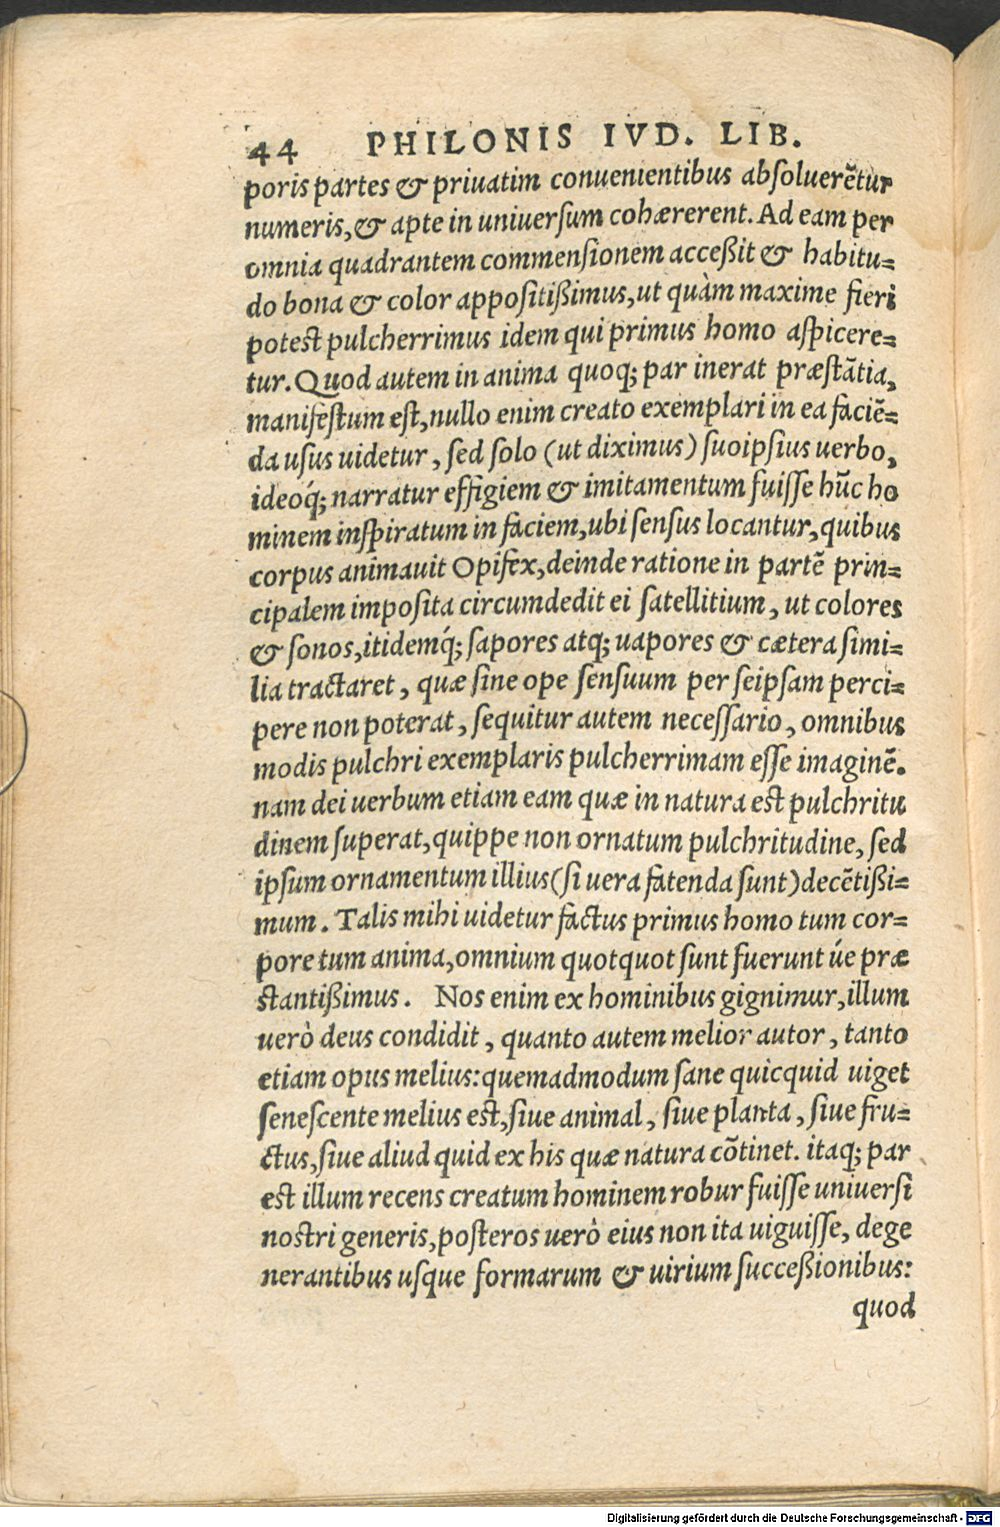 44 PHILONIS IVD. LIB.
poris partes & priuatim conuenientibus absoluerẽtur
numeris, & apte in uniuersum cohærerent. Ad eam per
omnia quadrantem commensionem acceßit & habitu=
do bona & color appositißimus, ut quàm maxime fieri
potest pulcherrimus idem qui primus homo aspicere=
tur. Quod autem in anima quoq; par inerat præstãtia,
manifestum est, nullo enim creato exemplari in ea faciẽ=
da usus uidetur, sed solo (ut diximus) suoipsius uerbo,
ideoq́; narratur effigiem & imitamentum fuisse hũc ho
minem inspiratum in faciem, ubi sensus locantur, quibus
corpus animauit Opifex, deinde ratione in partẽ prin=
cipalem imposita circumdedit ei satellitium, ut colores
& sonos, itidemq́; sapores atq; uapores & cætera simi=
lia tractaret, quæ sine ope sensuum per seipsam perci=
pere non poterat, sequitur autem necessario, omnibus
modis pulchri exemplaris pulcherrimam esse imaginẽ.
nam dei uerbum etiam eam quæ in natura est pulchritu
dinem superat, quippe non ornatum pulchritudine, sed
ipsum ornamentum illius (si uera fatenda sunt) decẽtißi=
mum. Talis mihi uidetur factus primus homo tum cor=
pore tum anima, omnium quotquot sunt fuerunt úe præ
stantißimus. Nos enim ex hominibus gignimur, illum
uerò deus condidit, quanto autem melior autor, tanto
etiam opus melius: quemadmodum sane quicquid uiget
senescente melius est, siue animal, siue planta, siue fru=
ctus, siue aliud quid ex his quæ natura cõtinet. itaq; par
est illum recens creatum hominem robur fuisse uniuersi
nostri generis, posteros uerò eius non ita uiguisse, dege
nerantibus usque formarum & uirium succeßionibus:
quod
Digitalisierung gefördert durch die Deutsche Forschungsgemeinschaft - DFG